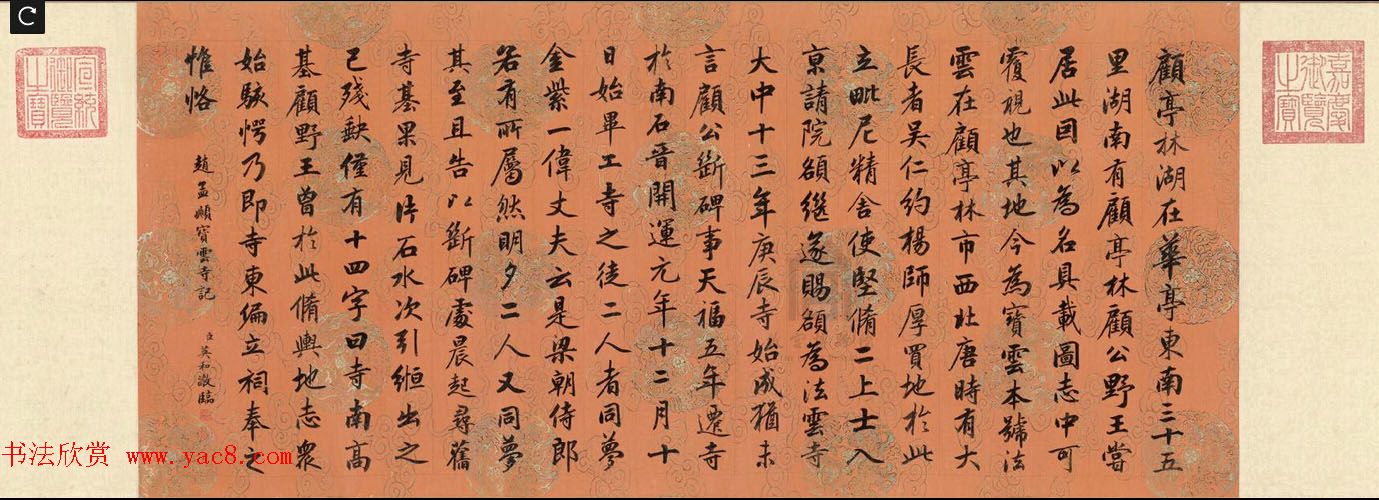 嘉慶御覽之寶
顧亭林湖在華亭東南三十五
里湖南有顧亭林顧公野王嘗
居此因以為名具載圖志中可
覆視也其地今為寶雲本號法
雲在顧亭林市西北唐時有大
長者吳仁約楊師厚買地於此
立毗尼精舍使堅脩二上士入
京請院額繼遂賜額為法雲寺
大中十三年庚辰寺始成猶未
言顧公斷碑事天福五年遷寺
於南石晉開運元年十二月十
日始畢工寺之徒二人者同夢
金紫一偉丈夫云是梁朝侍郎
若有所屬然明夕二人又同夢
其至且告以斷碑處晨起尋舊
寺基果見片石水次引縆出之
已殘缺僅有十四字曰寺南高
基顧野王曾於此脩輿地志眾
始駭愕乃即寺東偏立祠奉之
惟恪
趙孟頫寶雲寺記
臣英和敬臨
宣統御覽之寶
书法欣赏 www.yac8.com